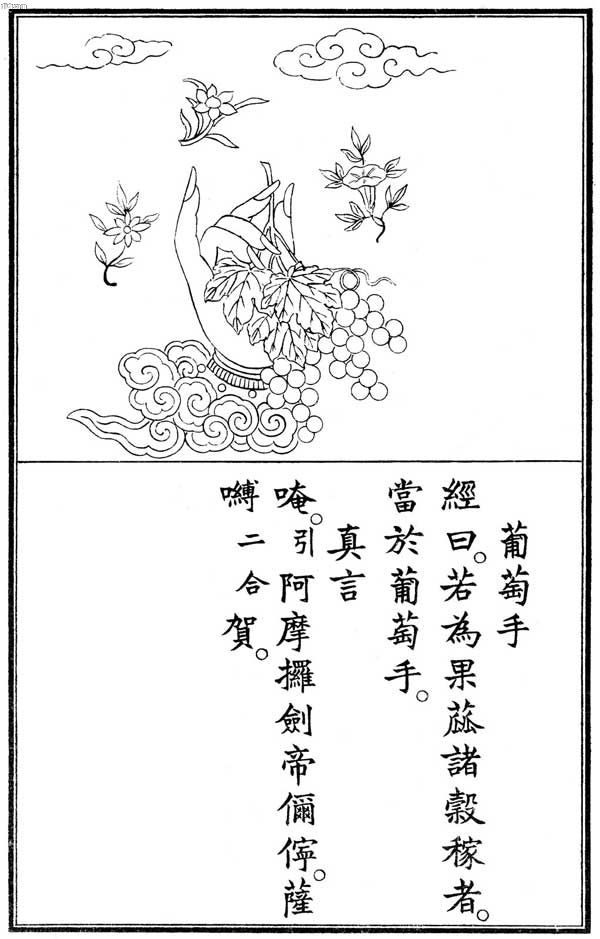 葡萄手
經曰。若為果蓏諸穀稼者。
當於葡萄手。
真言
唵。引阿摩攞劍帝儞儜。薩
嚩二合賀。